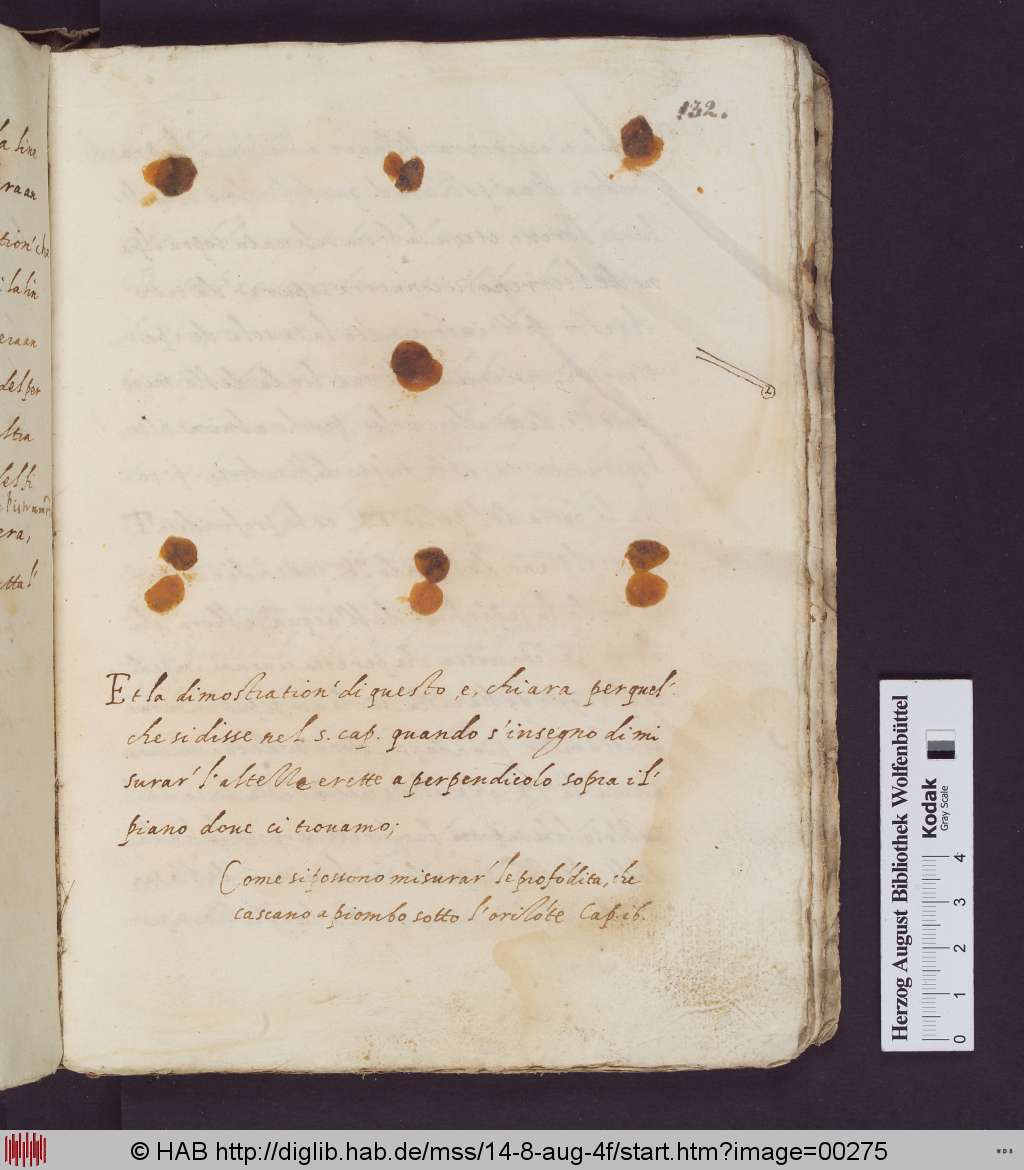 132.
Et la dimostration' di questo, e, chiara per quel'
che si disse nel s. cap. quando s'insegno di mi
surar' l'altelle erette a perpendicolo sopra il'
piano doue ci trouamo;
Come si possono misurar' le profõdita, che
cascano a piombo sotto l'orilõte Cap. 16.
a line
raan
tion' che
i la lin
eraan
del per
stra
era,
etta'
Herzog August Bibliothek Wolfenbüttel
Kodak
Gray Scale
0 1 2 3 4
© HAB http://diglib.hab.de/mss/14-8-aug-4f/start.htm?image=00275